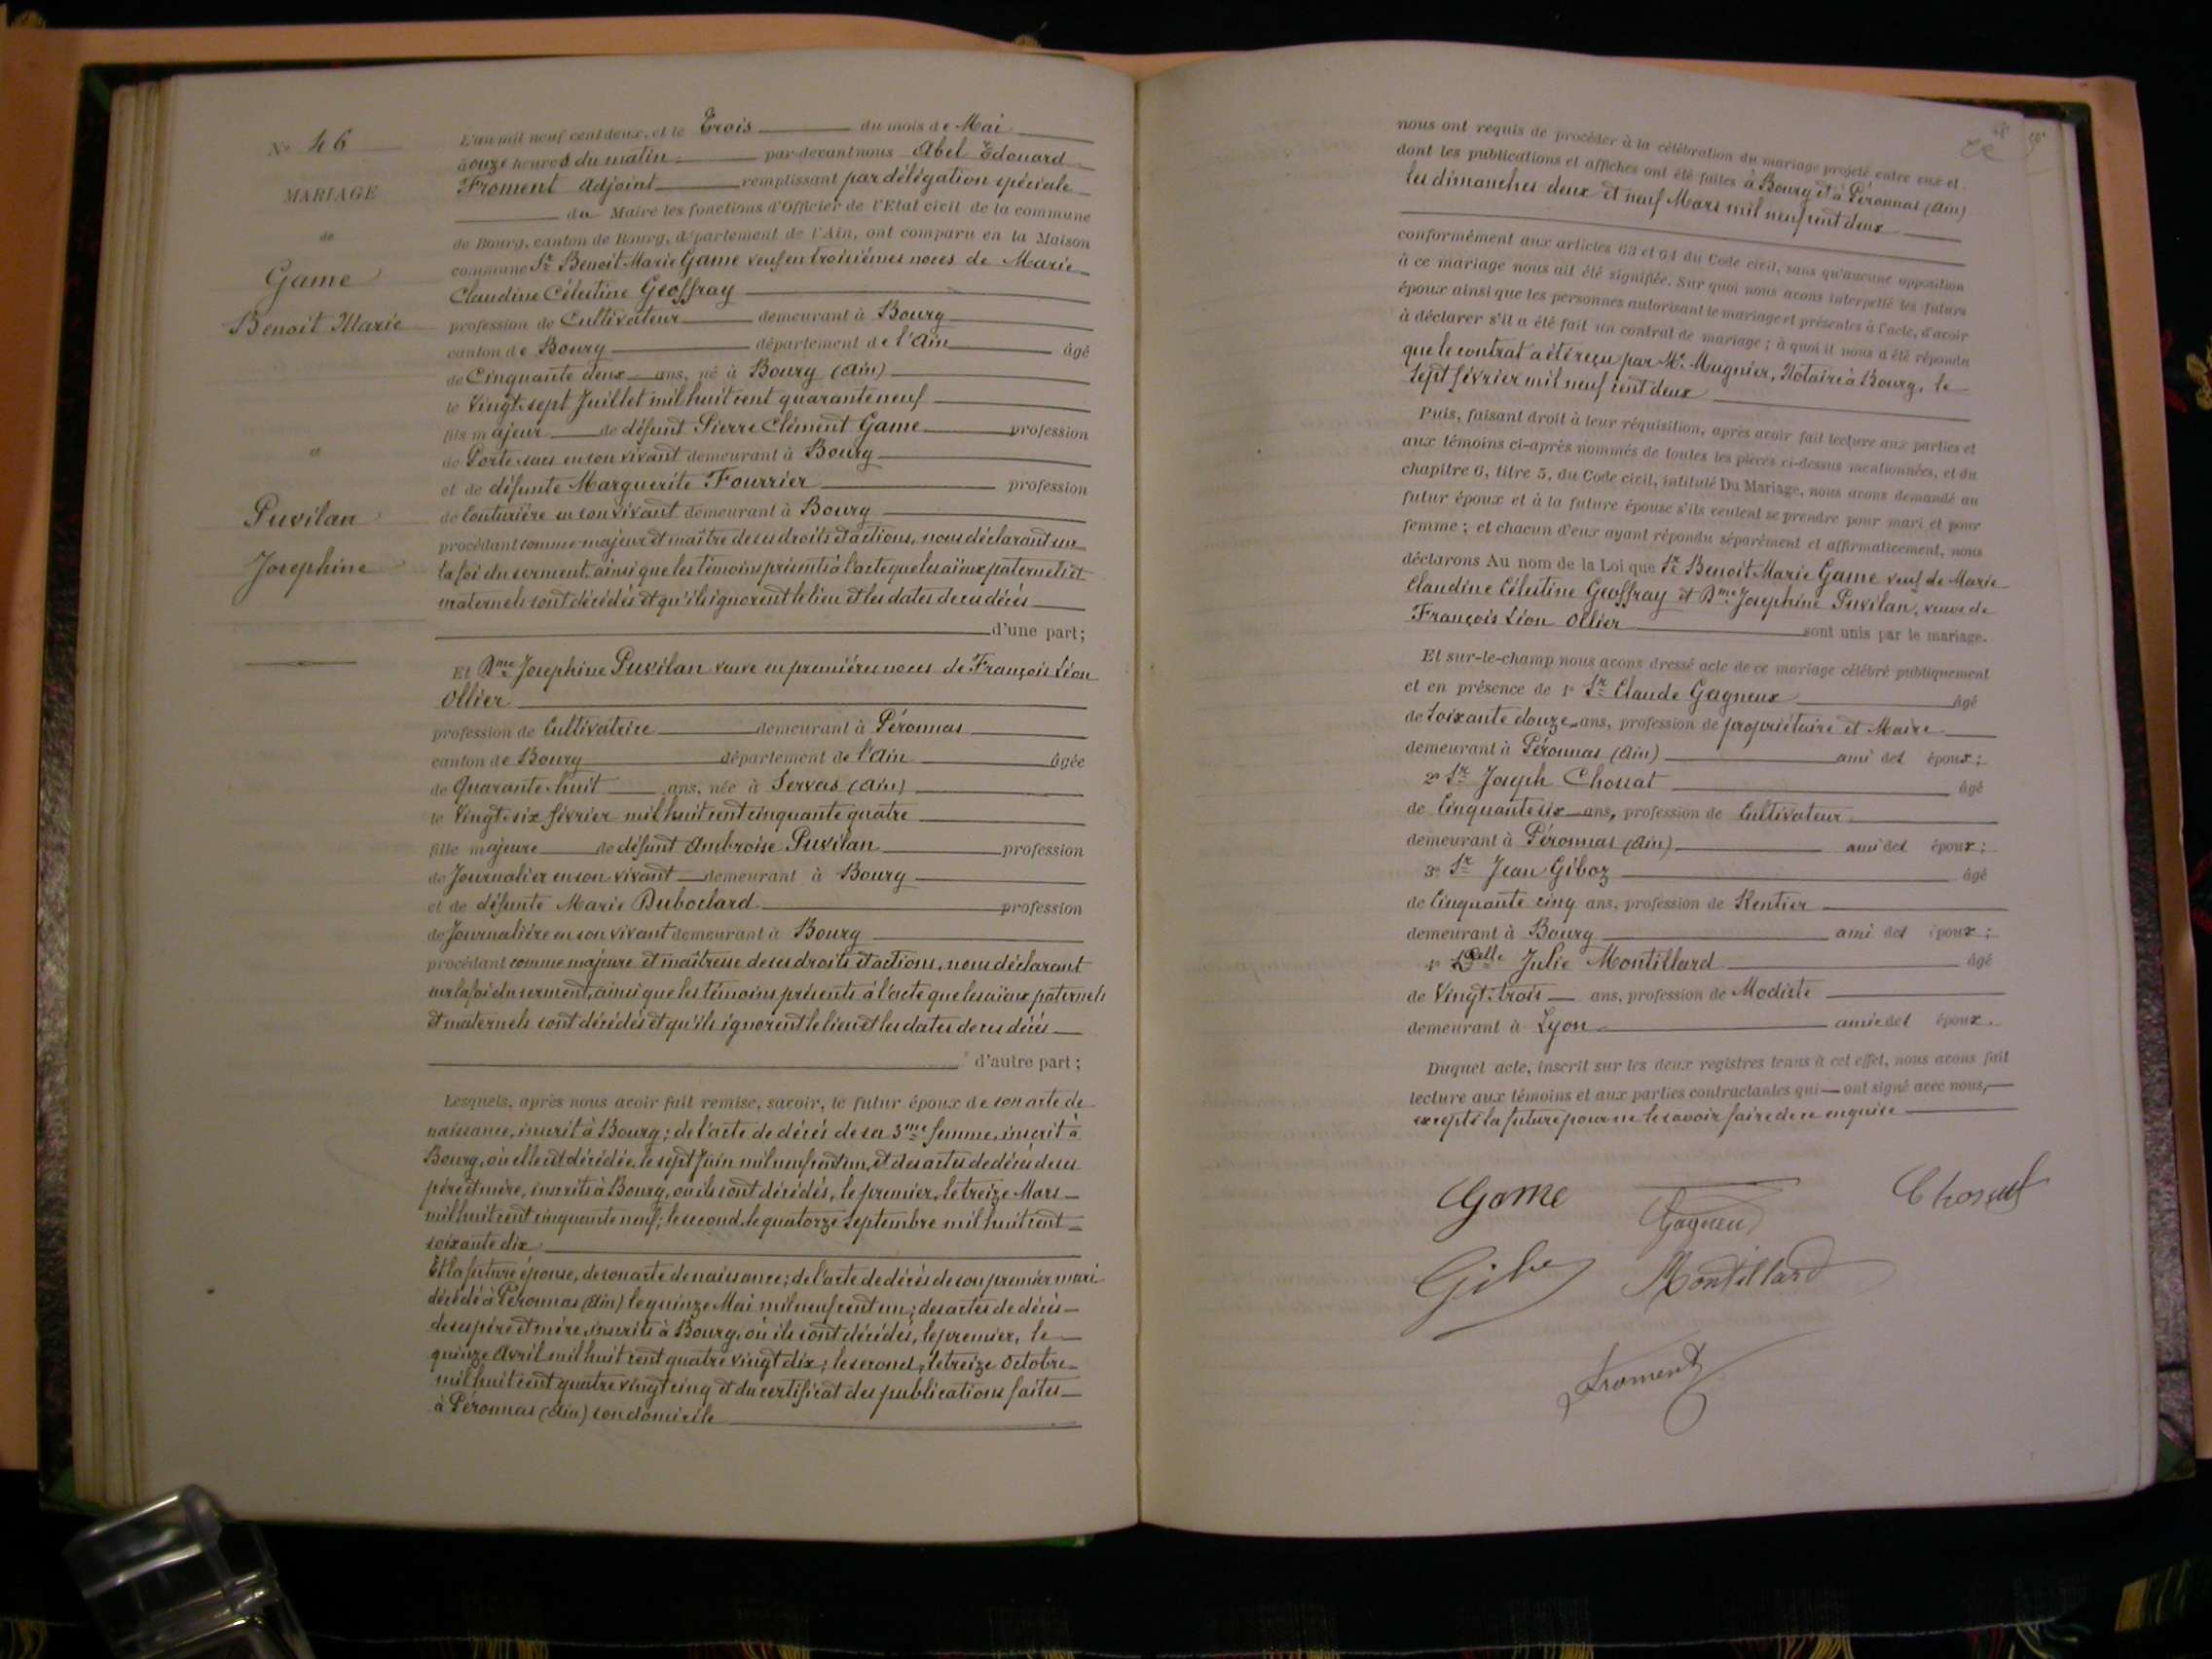 No 46
MARIAGE
de
Game
Benoit Marie
et
Puvilan
Josephine
L'an mil neuf cent deux, et le Trois du mois de Mai
à onze heures du matin par-devant nous Abel Edouard
Froment Adjoint remplissant par délégation spéciale
du Maire les fonctions d'Officier de l'Etat civil de la commune
de Bourg, canton de Bourg, département de l'Ain, ont comparu en la Maison
commune Sr Benoit Marie Game veuf en troisièmes noces de Marie
Claudine Célestine Geoffray
profession de Cultivateur demeurant à Bourg
canton de Bourg département de l'Ain âgé
de Cinquante deux ans, né à Bourg (Ain)
le Vingt-sept Juillet mil huit cent quarante neuf
fils majeur de défunt Pierre Clément Game profession
de Porte-sacs en son vivant demeurant à Bourg
et de défunte Marguerite Fourrier profession
de Couturière en son vivant demeurant à Bourg
procédant comme majeur et maître de ses droits et actions, nous déclarant sur
la foi du serment, ainsi que les témoins présents à l'acte que les aïeux paternels et
maternels sont décédés et qu'ils ignorent le lieu et les dates de ces décès
d'une part;
Et Dme Josephine Puvilan veuve en premières noces de François Léon
Ollier
profession de Cultivatrice demeurant à Péronnas
canton de Bourg département de l'Ain âgée
de Quarante-huit ans, née à Servas (Ain)
le Vingt-six février mil huit cent cinquante quatre
fille majeure de défunt Ambroise Puvilan profession
de Journalier en son vivant demeurant à Bourg
et de défunte Marie Duboclard profession
de Journalière en son vivant demeurant à Bourg
procédant comme majeure et maîtresse de ses droits et actions, nous déclarant
sur la foi du serment, ainsi que les témoins présents à l'acte que les aïeux paternels
et maternels sont décédés et qu'ils ignorent le lieu et les dates de ces décès
d'autre part;
Lesquels, après nous avoir fait remise, savoir, le futur époux de son acte de
naissance, inscrit à Bourg; de l'acte de décès de sa 3me femme, inscrit à
Bourg, où elle est décédée, le sept Juin mil neuf cent un, et des actes de décès de ses
père et mère, inscrits à Bourg, où ils sont décédés, le premier, le treize Mars
mil huit cent cinquante neuf; le second, le quatorze Septembre mil huit cent
soixante dix
Et la future épouse, de son acte de naissance; de l'acte de décès de son premier mari
décédé à Péronnas (Ain) le quinze Mai mil neuf cent un; des actes de décès
de ses père et mère, inscrits à Bourg, où ils sont décédés, le premier, le
quinze Avril mil huit cent quatre vingt dix; le second, le treize Octobre
mil huit cent quatre vingt cinq et du certificat des publications faites
à Péronnas (Ain) son domicile
nous ont requis de procéder à la célébration du mariage projeté entre eux et
dont les publications et affiches ont été faites à Bourg et à Péronnas (Ain)
les dimanches deux et neuf Mars mil neuf cent deux
conformément aux articles 63 et 64 du Code civil, sans qu'aucune opposition
à ce mariage nous ait été signifiée. Sur quoi nous avons interpellé les futurs
époux ainsi que les personnes autorisant le mariage et présentes à l'acte, d'avoir
à déclarer s'il a été fait un contrat de mariage; à quoi il nous a été répondu
que le contrat a été reçu par Me Mugnier, Notaire à Bourg, le
sept février mil neuf cent deux
Puis, faisant droit à leur réquisition, après avoir fait lecture aux parties et
aux témoins ci-après nommés de toutes les pièces ci-dessus mentionnées, et du
chapitre 6, titre 5, du Code civil, intitulé Du Mariage, nous avons demandé au
futur époux et à la future épouse s'ils veulent se prendre pour mari et pour
femme; et chacun d'eux ayant répondu séparément et affirmativement, nous
déclarons Au nom de la Loi que Sr Benoit Marie Game veuf de Marie
Claudine Célestine Geoffray et Dme Josephine Puvilan, veuve de
François Léon Ollier sont unis par le mariage.
Et sur-le-champ nous avons dressé acte de ce mariage célébré publiquement
et en présence de 1° Sr Claude Gagneux âgé
de Soixante douze ans, profession de propriétaire et Maire
demeurant à Péronnas (Ain) ami des époux;
2° Sr Joseph Chossat âgé
de Cinquante six ans, profession de Cultivateur
demeurant à Péronnas (Ain) ami des époux;
3° Sr Jean Giboz âgé
de Cinquante cinq ans, profession de Rentier
demeurant à Bourg ami des époux;
4° Delle Julie Montillard âgé
de Vingt-trois ans, profession de Modiste
demeurant à Lyon amie des époux.
Duquel acte, inscrit sur les deux registres tenus à cet effet, nous avons fait
lecture aux témoins et aux parties contractantes qui ont signé avec nous,
excepté la future pour ne le savoir faire de ce enquise
Game Gagneu Chossat
Gibo Montillard
Froment